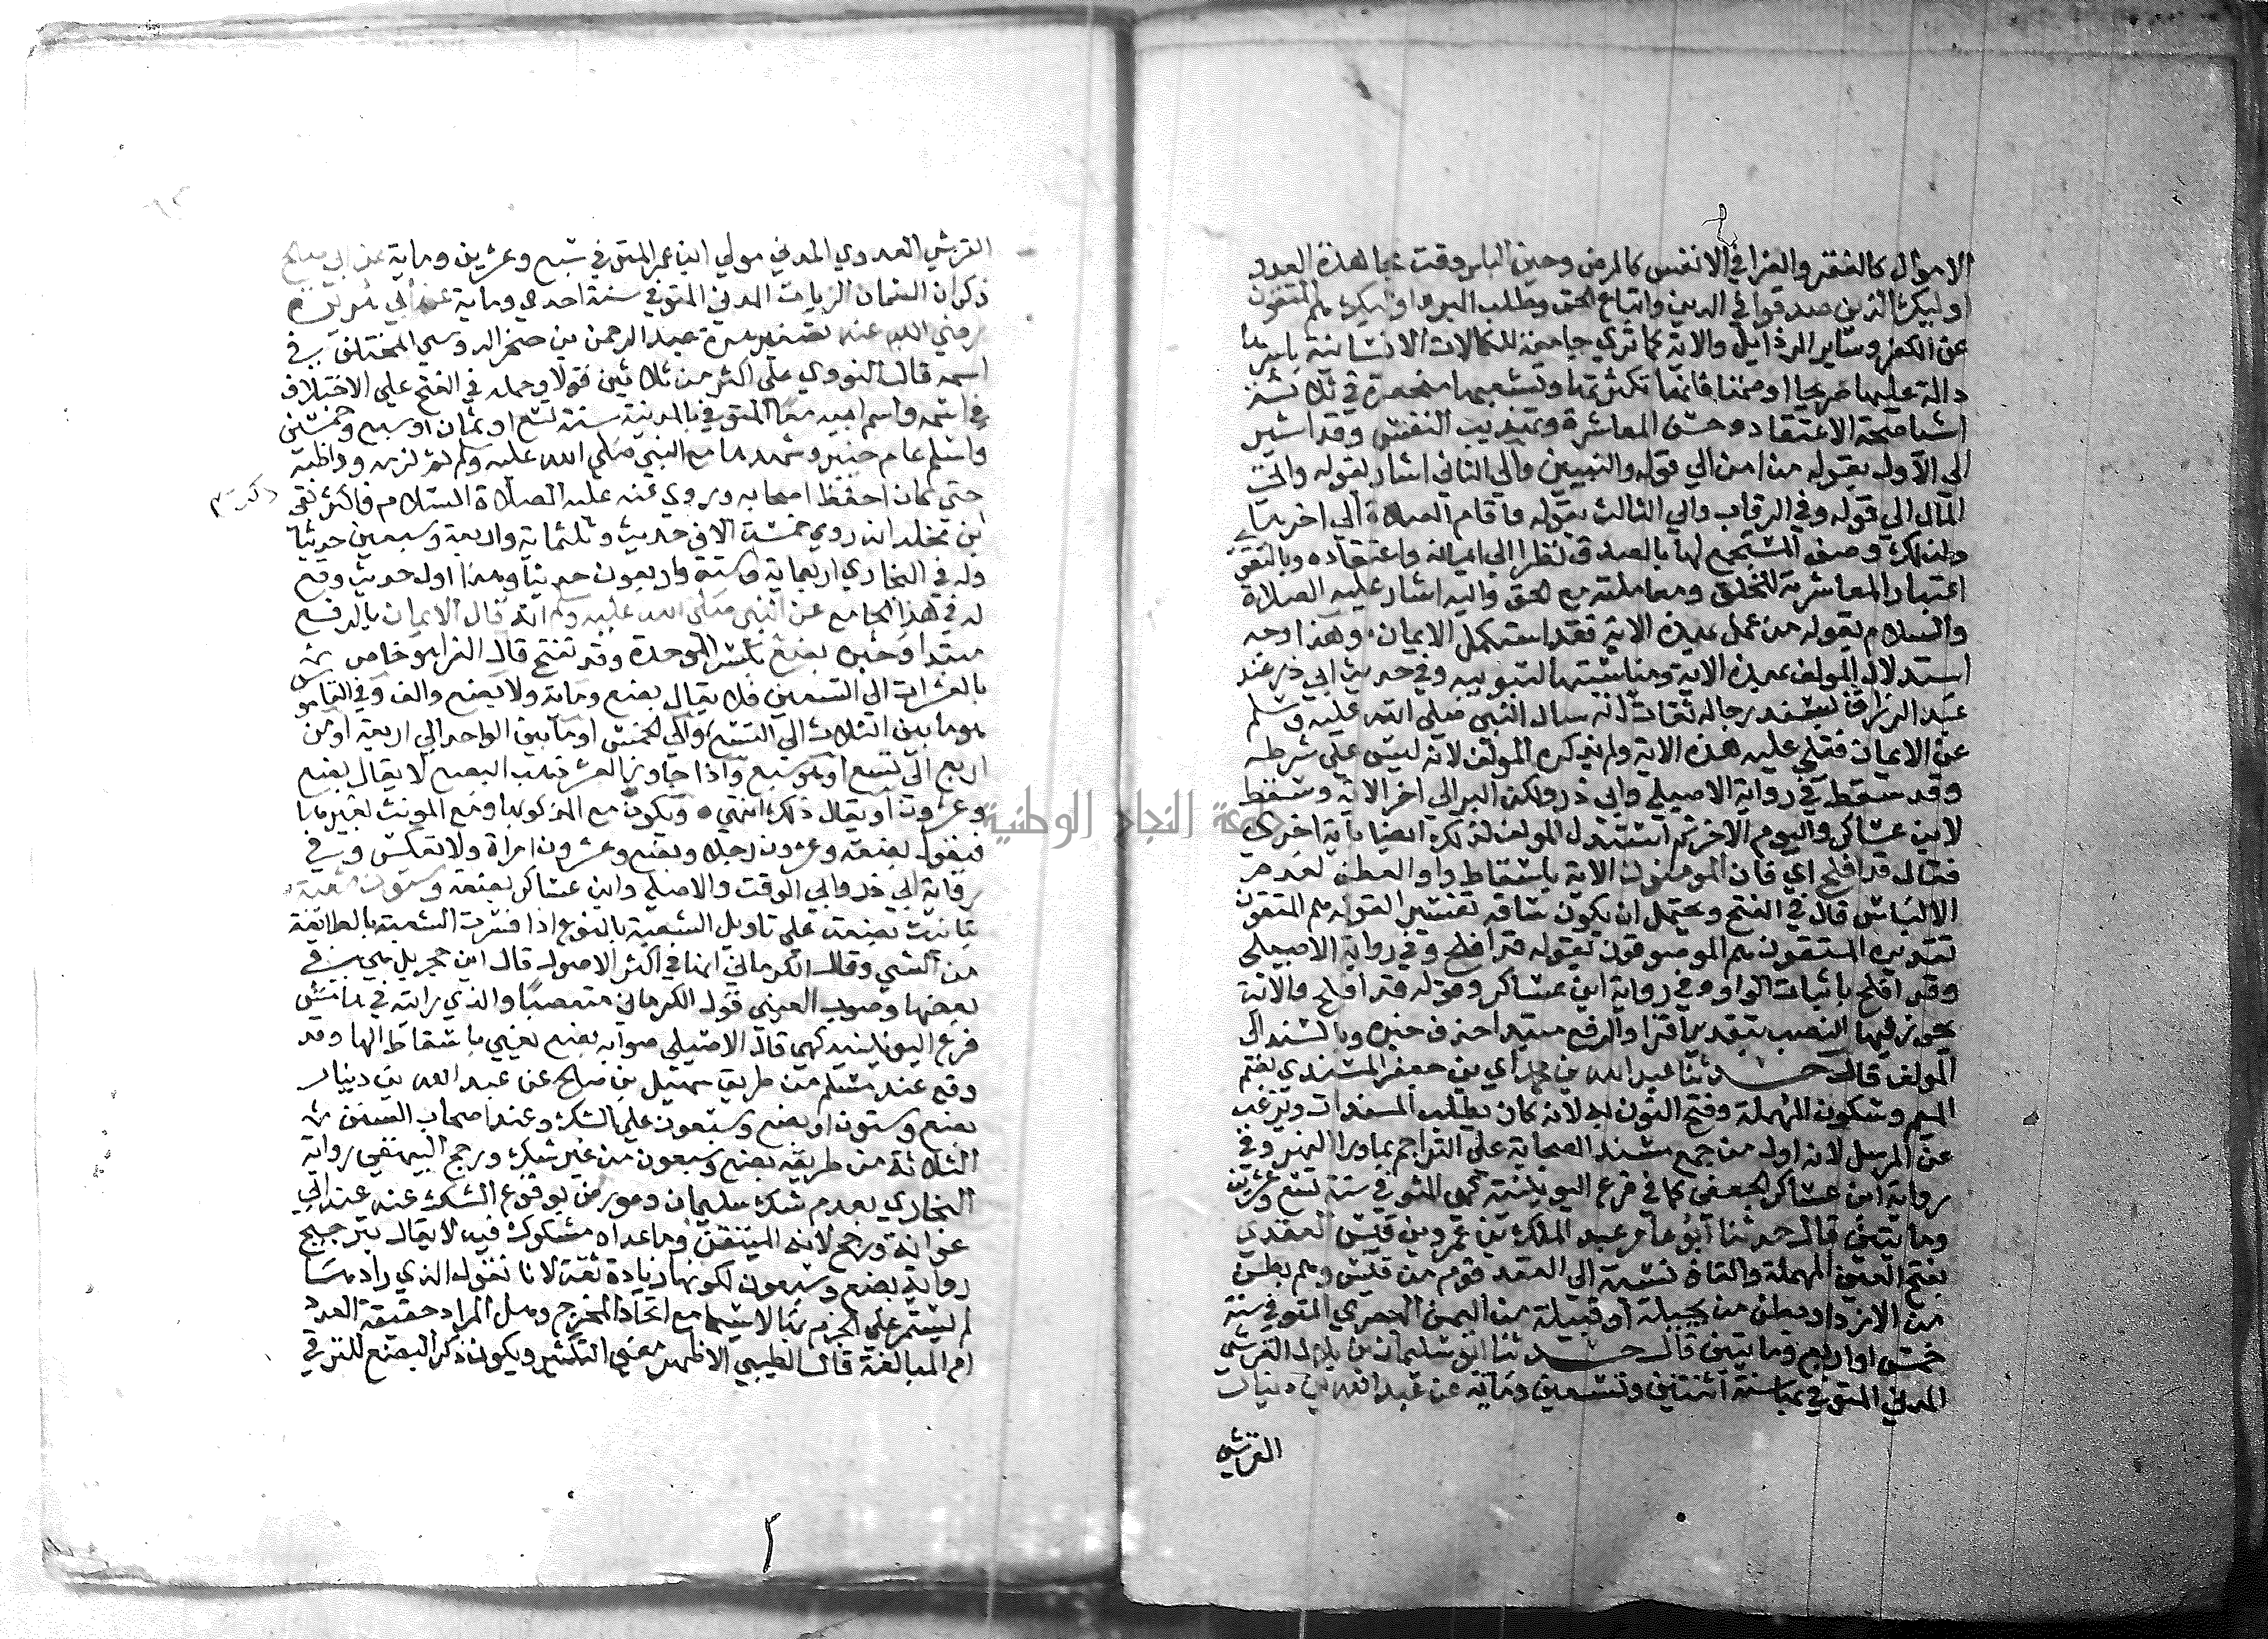 الاموال كالفقر والضرا في الانفس كالمرض وحين الباس وقت مجاهدة العدو
اوليك الذين صدقوا في الدين واتباع الحق وطلب البر واوليك هم المتقون
عن الكفر وساير الرذايل والاية كما ترى جامعة للكمالات الانسانية باسرها
دالة عليها صريحا او ضمنا فانها بكثرتها وتشعبها منحصرة في ثلاثة
اشيا صحة الاعتقاد وحسن المعاشرة وتهذيب النفس وقد اشير
الي الاول بقوله من امن الي قوله والنبيين والي الثاني اشار بقوله واتي
المال الي قوله وفي الرقاب والي الثالث بقوله واقام الصلاة الي اخرها
ولذلك وصف المستجمع لها بالصدق نظرا الي ايمانه واعتقاده وبالتقوي
اعتبارا لمعاشرته للخلق ومعاملته مع الحق واليه اشار عليه الصلاة
والسلام بقوله من عمل بهذه الاية فقد استكمل الايمان وهذا وجه
استدلال المولف بهذه الاية ومناسبتها لتبويبه وفي حديث ابي ذر عند
عبد الرزاق بسند رجاله ثقات انه سال النبي صلي الله عليه وسلم
عن الايمان فتلي عليه هذه الاية ولم يذكره المولف لانه ليس علي شرطه
وقد سقط في رواية الاصيلي وابي ذر ولكن البر الي اخر الاية وسقط
لابن عساكر واليوم الاخر ثم استدل المولف لذلك ايضا باية اخري
فقال قد افلح اي فاز المومنون الاية باسقاط واو العطف لعدم
الالباس قال في الفتح ويحتمل ان يكون ساقه تفسير القوله هم المتقون
تقديره المتقون هم الموصوفون بقوله قد افلح وفي رواية الاصيلي
وقد افلح باثبات الواو وفي رواية ابن عساكر وقوله قد افلح والاية
يجوز فيها النصب بتقدير اقرا والرفع مبتدا حذف خبره وبالسند الي
المولف قال حدثنا عبد الله بن محمد اي بن جعفر المسندي بضم
الميم وسكون المهملة وفتح النون به لانه كان يطلب المسندات ويرغب
عن المرسل لانه اول من جمع مسند الصحابة علي التراجم بماورا النهر وفي
رواية ابن عساكر الجعفي كما في فرع اليونينية المتوفي سنة تسع وعشرين
وماتين قال حدثنا ابو عامر عبد الملك بن عمرو بن قيس العقدي
بفتح العين المهملة والقاف نسبة الي العقد قوم من قيس وهم بطن
من الازد او بطن من بجيلة او قبيلة من اليمن البصري المتوفي سنة
خمس او اربع وماتين قال حدثنا سليمان بن بلال القرشي
المدني المتوفي بها سنة اثنتين وسبعين وماية عن عبد الله بن دينار
القرشي
القرشي العدوي المدني مولي ابن عمر المتوفي سبع وعشرين وماية عن ابي صالح
ذكوان السمان الزيات المدني المتوفي سنة احدي وماية عن ابي هريرة
رضي الله عنه تصغير هرة عبد الرحمن بن صخر الدوسي المختلف في
اسمه قال النووي علي اكثر من ثلاثين قولا وحمله في الفتح علي الاختلاف
في اسمه واسم ابيه معا المتوفي بالمدينة سنة تسع او ثمان او سبع وخمسين
واسلم عام خيبر وشهدها مع النبي صلي الله عليه وسلم ثم لزمه وواظبه
حتي كان احفظ اصحابه وروي عنه عليه الصلاة السلام فاكثر بقي
ابن مخلد انه روي خمسة الاف حديث وثلثماية واربعة وسبعين حديثا
وله في البخاري اربعماية وستة واربعون حديثا وهذا اول حديث وقع
له في هذا الجامع عن النبي صلي الله عليه وسلم انه قال الايمان بالرفع
مبتدا وخبره بضع بكسر الموحدة وقد تفتح قال الفرا هو خاص
بالعشرات الي التسعين فلا يقال بضع وماية ولا بضع والف وفي القاموس
هو ما بين الثلاث الي التسع والي الخمس او ما بين الواحد الي اربعة او من
اربع الي تسع او هو سبع واذا جاوز العشر ذهب البضع لا يقال بضع
وعشرون او يقال ذلك انتهي ويكون مع المذكر بها ومع المونث بغير ها
فتقول بضعة وعشرون رجلا وبضع وعشرون امراة ولا تعكس وفي
رواية ابي ذر وابي الوقت والاصيلي وابن عساكر بضعة وستون شعبة
بتانيث بضعة علي تاويل الشعبة بالنوع اذا فسرت الشعبة بالطايفة
من الشي وقال الكرماني انها في اكثر الاصول قال ابن حجر بل هي في
بعضها وصوب العيني قول الكرماني متعصبا والذي رايته في هامش
فرع اليونينية كهي قال الاصيلي صوابه بضع يعني باسقاط الها وقد
وقع عند مسلم من طريق سهيل بن صالح عن عبد الله بن دينار
بضع وستون او بضع وسبعون علي الشك وعند اصحاب السنن
الثلاثة من طريقه بضع وسبعون من غير شك ورجح البيهقي رواية
البخاري بعدم شك سليمان وعورض بوقوع الشك عنه عند ابي
عوانة ورجح لانه المتيقن وما عداه مشكوك فيه لا يقال بترجيح
رواية بضع وسبعون لكونها زيادة ثقة لانا نقول الذي زادها
لم يستمر علي الجزم بها لا سيما مع اتحاد المخرج وهل المراد حقيقة العدد
ام المبالغة قال الطيبي الاظهر معني التكثير ويكون ذكر البضع للترقي
جامعة النجاح الوطنية